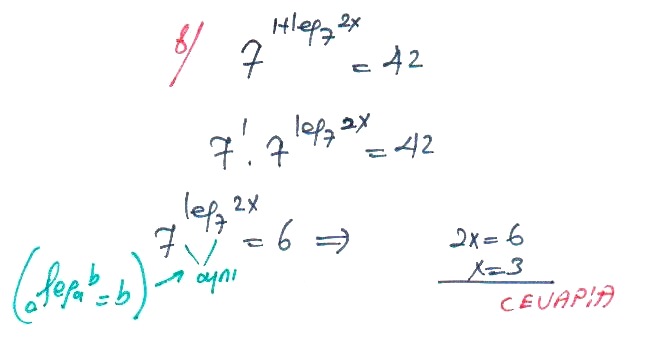 8/ 7^{1+log_7 2x} = 42
7^1 . 7^{log_7 2x} = 42
7^{log_7 2x} = 6 ⇒ 2x = 6
(a^{log_a b} = b) → aynı x = 3
CEVAP: A